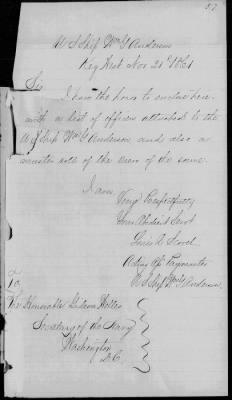 57
U S Ship Wm G Anderson
Key West Nov 21 1861
Sir
I have the honor to enclose here-
with a list of officers attached to the
U S Ship Wm G Anderson and also a
muster role of the crew of the same.
I am
Very Respectfully
Your Obedient Servt
Acting Paymaster
U S Ship Wm G Anderson.
To
The Honorable Gideon Welles
Secretary of the Navy
Washington
D.C.